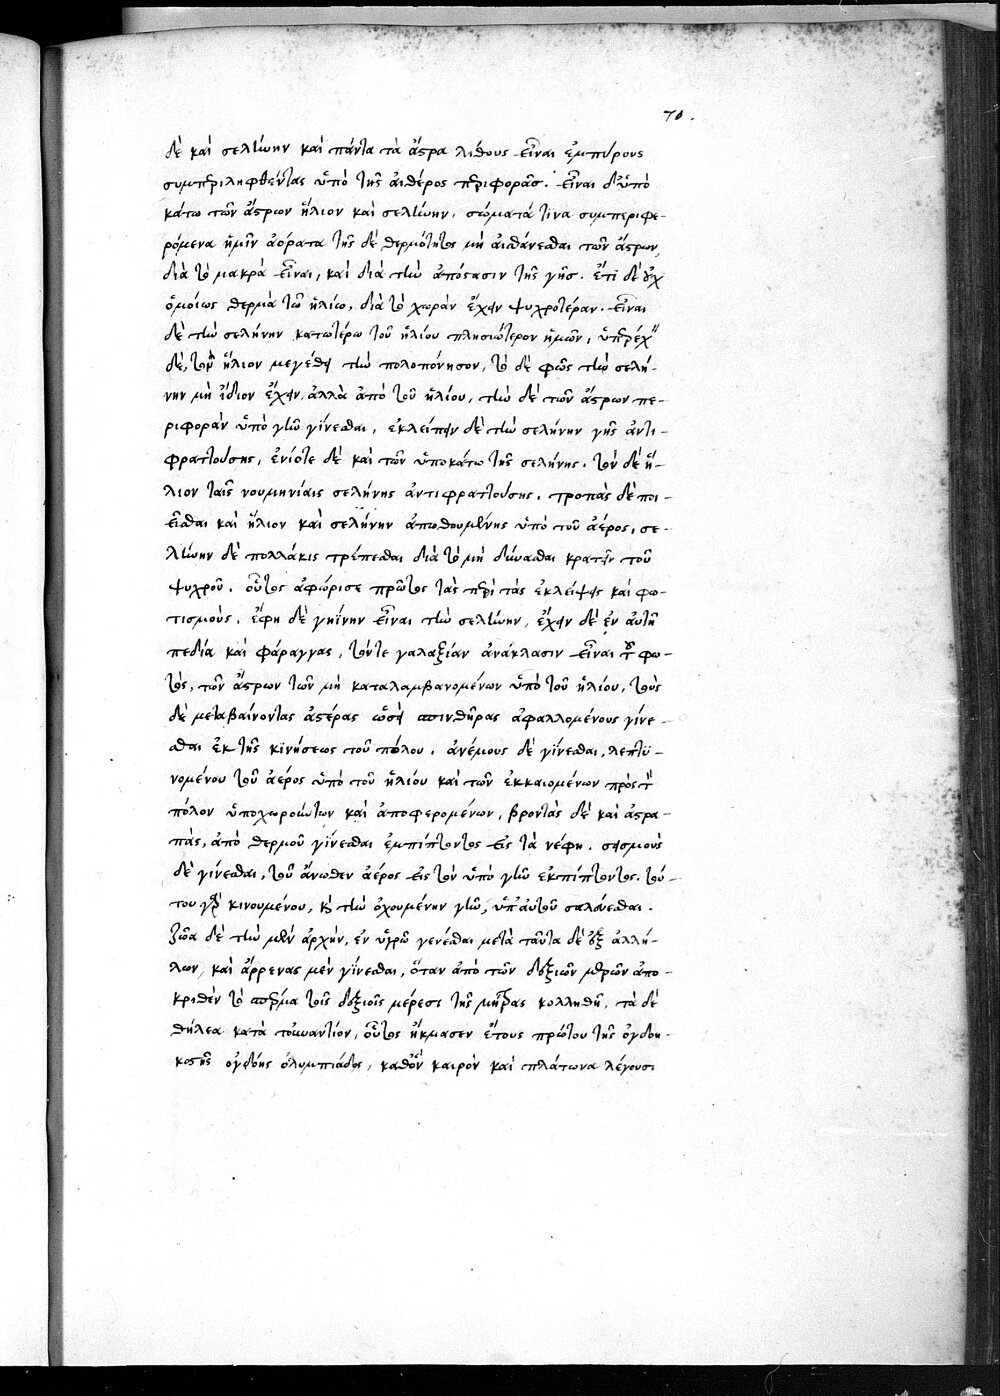 70.
δὲ καὶ σελήνην καὶ πάντα τὰ ἄστρα λίθους εἶναι ἐμπύρους
συμπεριληφθέντας ὑπὸ τῆς αἰθέρος περιφορᾶς. εἶναι δ' ὑπὸ
κάτω τῶν ἄστρων ἥλιον καὶ σελήνην, σώματά τινα συμπεριφε-
ρόμενα ἡμῖν ἀόρατα τῆς δὲ θερμότητος μὴ αἰσθάνεσθαι τῶν ἄστρων,
διὰ τὸ μακρὰ εἶναι, καὶ διὰ τὴν ἀπόστασιν τῆς γῆς. ἔτι δὲ οὐχ
ὁμοίως θερμὰ τῶ ἡλίω, διὰ τὸ χωρὰν ἔχειν ψυχροτέραν. εἶναι
δὲ τὴν σελήνην κατωτέρω τοῦ ἡλίου πλησιώτερον ἡμῶν, ὑπερέχειν
δὲ, τὸν ἥλιον μεγέθει τὴν πολοπόνησον, τὸ δὲ φῶς τὴν σελή-
νην μὴ ἴδιον ἔχειν, ἀλλὰ ἀπὸ τοῦ ἡλίου, τὴν δὲ τῶν ἄστρων πε-
ριφορὰν ὑπὸ γῆν γίνεσθαι, ἐκλείπειν δὲ τὴν σελήνην γῆς ἀντι-
φραττούσης, ἐνίοτε δὲ καὶ τῶν ὑποκάτω τῆς σελήνης. τὸν δὲ ἥ-
λιον ταῖς νουμηνίαις σελήνης ἀντιφραττούσης. τροπὰς δὲ ποι-
εῖσθαι καὶ ἥλιον καὶ σελήνην ἀπωθουμένης ὑπὸ τοῦ ἀέρος, σε-
λήνην δὲ πολλάκις τρέπεσθαι διὰ τὸ μὴ δύνασθαι κρατεῖν τοῦ
ψυχροῦ. οὗτος ἀφώρισε πρῶτος τὰς περὶ τὰς ἐκλείψεις καὶ φω-
τισμοὺς. ἔφη δὲ γηΐνην εἶναι τὴν σελήνην, ἔχειν δὲ ἐν αὐτῆ
πεδία καὶ φάραγγας, τόντε γαλαξίαν ἀνάκλασιν εἶναι τοῦ φω-
τὸς, τῶν ἄστρων τῶν μὴ καταλαμβανομένων ὑπὸ τοῦ ἡλίου, τοὺς
δὲ μεταβαίνοντας ἀστέρας ὡσεὶ σπινθῆρας ἀφαλλομένους γίνε-
σθαι ἐκ τῆς κινήσεως τοῦ πόλου. ἀνέμους δὲ γίνεσθαι, λεπτυ-
νομένου τοῦ ἀέρος ὑπὸ τοῦ ἡλίου καὶ τῶν ἐκκαιομένων πρὸς τὸν
πόλον ὑποχωρούντων καὶ ἀποφερομένων, βροντὰς δὲ καὶ ἀστρα-
πὰς, ἀπὸ θερμοῦ γίνεσθαι ἐμπίπτοντος εἰς τὰ νέφη. σεισμοὺς
δὲ γίνεσθαι, τοῦ ἄνωθεν ἀέρος εἰς τὸν ὑπὸ γῆν ἐκπίπτοντος. τού-
του γὰρ κινουμένου, καὶ τὴν ὀχουμένην γῆν, ὑπ' αὐτοῦ σαλεύεσθαι.
ζῶα δὲ τὴν μὲν ἀρχὴν, ἐν ὑγρῶ γενέσθαι μετὰ ταῦτα δὲ ἐξ ἀλλή-
λων, καὶ ἄρρενας μὲν γίνεσθαι, ὅταν ἀπὸ τῶν δεξιῶν μερῶν ἀπο-
κριθὲν τὸ σπέρμα τοῖς δεξιοῖς μέρεσι τῆς μήτρας κολληθῆ, τὰ δὲ
θήλεα κατὰ τοὐναντίον, οὗτος ἤκμασεν ἔτους πρώτου τῆς ὀγδοη-
κοστῆς ὀγδόης ὀλυμπιάδος, καθ' ὃν καιρὸν καὶ πλάτωνα λέγουσι